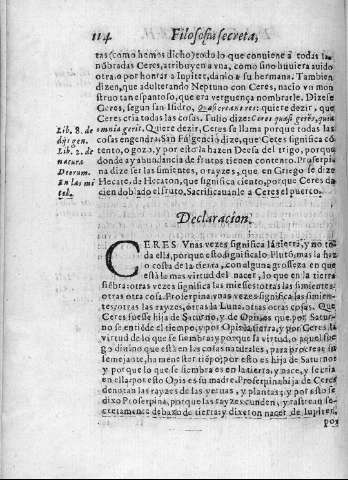 114 Filosofia secreta,
tas (como hemos dicho) todo lo que conuiene à todas la
nõbradas Ceres, atribuyen a vna, como si no huuiera auido
otra o por honrar a Iupiter, dãnlo a su hermana. Tambien
dizen, que adulterando Neptuno con Ceres, nacio vn mon
struo tan espantoso, que era verguença nombrarle. Dizese
Ceres, segun san Isidro, à creando res: quiere dezir, que
Ceres cria todas las cosas. Tulio dize: Ceres quasi gerês, quia
omnia gerit. Quiere dezir, Ceres se llama porque todas las
cosas engendra. San Fulgencio dize, que Cetes significa cõ
tento, o gozo, y por esto la hazen Deesa del trigo, porque
donde ay abundancia de frutos tienen contento. Proserpi
na dize ser las simientes, o rayzes, que en Griego se dize
Hecate, de Hecaton, que significa ciento, porque Ceres da
cien doblado el fruto. Sacrificauanle a Ceres el puerco.
Lib. 8. de
origen.
Lib. 2. de
natura
Deorum.
En las mi
tol.
Declaracion.
CERES vnas vezes significa la tierra, y no to
da ella, porque esto significalo Plutõ, mas la haz
o costa de la tierra, con alguna grosseza en que
està la mas virtud del nacer, lo que en la tierra
siẽbrã: otras vezes significa las miesses: otras las simientes,
otras otra cosa. Proserpina vnas vezes significa las simien-
tes, otras las rayzes, otras la Luna, otras otras cosas. Que
Ceres fuesse hija de Saturno, y de Opis, es que por Satur-
no se entiẽde el tiempo, y por Opis la tierra, y por Ceres la
virtud de lo que se siembra: y porque la virtud, o aquel fue
go diuino que està en las cosas naturales, para procrear su
semejante, ha menester tiẽpo; por esto es hija de Saturno:
y porque lo que se siembra es en la tierra, y nace, y se cria
en ella: por esto Opis es su madre. Proserpina hija de Ceres
denotan las rayzes de las yeruas, y plantas, y por esto se
dixo Proserpina, porque las rayzes cunden, y rastrean se-
cretamente debaxo de tierra: y dixeron nacer de Iupiter,
por